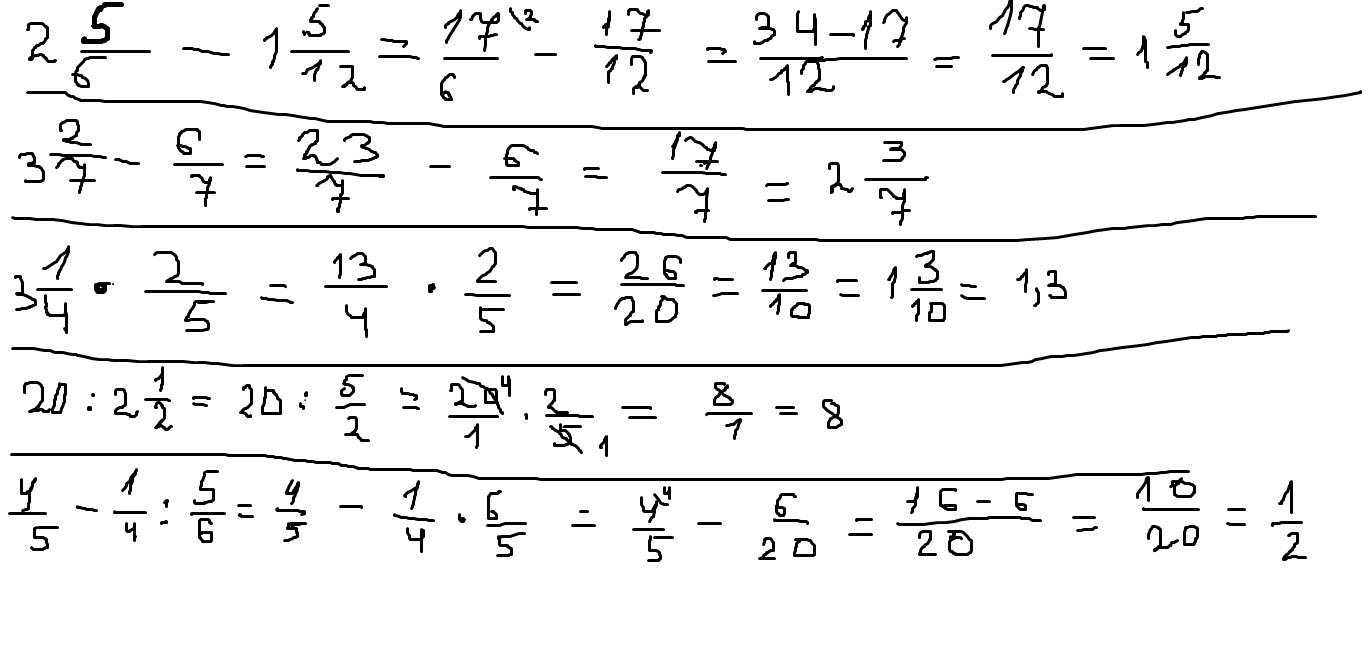 2 5/6 — 1 5/12 = 17\²/6 - 17/12 = 34-17/12 = 17/12 = 1 5/12
3 2/7 - 6/7 = 23/7 - 6/7 = 17/7 = 2 3/7
3 1/4 · 2/5 = 13/4 · 2/5 = 26/20 = 13/10 = 1 3/10 = 1,3
20 : 2 1/2 = 20 : 5/2 = 20⁴/1 · 2/5 1 = 8/1 = 8
4/5 - 1/4 : 5/6 = 4/5 - 1/4 · 6/5 = 4\⁴/5 - 6/20 = 16-6/20 = 10/20 = 1/2